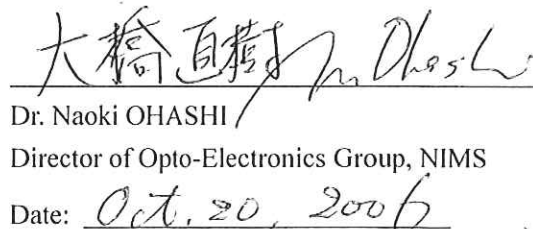 大橋直樹 N. Ohashi
Dr. Naoki OHASHI
Director of Opto-Electronics Group, NIMS
Date: Oct. 20, 2006